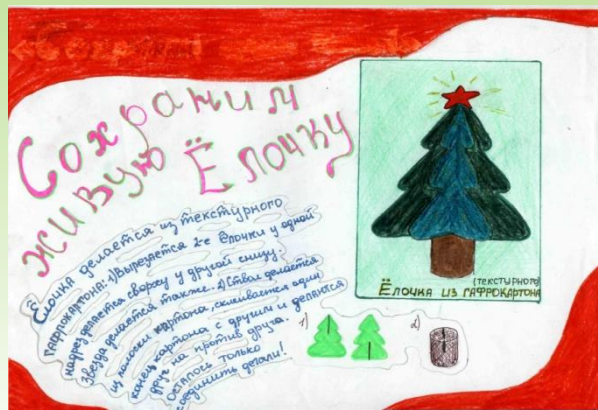 Сохраним
живую Ёлочку
Ёлочка делается из текстурного
гафрокартона: 1) Вырезается 2-е Ёлочки у одной
надрез делается сверху у другой снизу.
Звезда делается также. 2) Ствол делается
из полоски картона, склеивается один
конец картона с другим и делаются
друг на против друга.
Осталось только
соединить детали!
(текстурного)
Ёлочка из гафрокартона
1)
2)